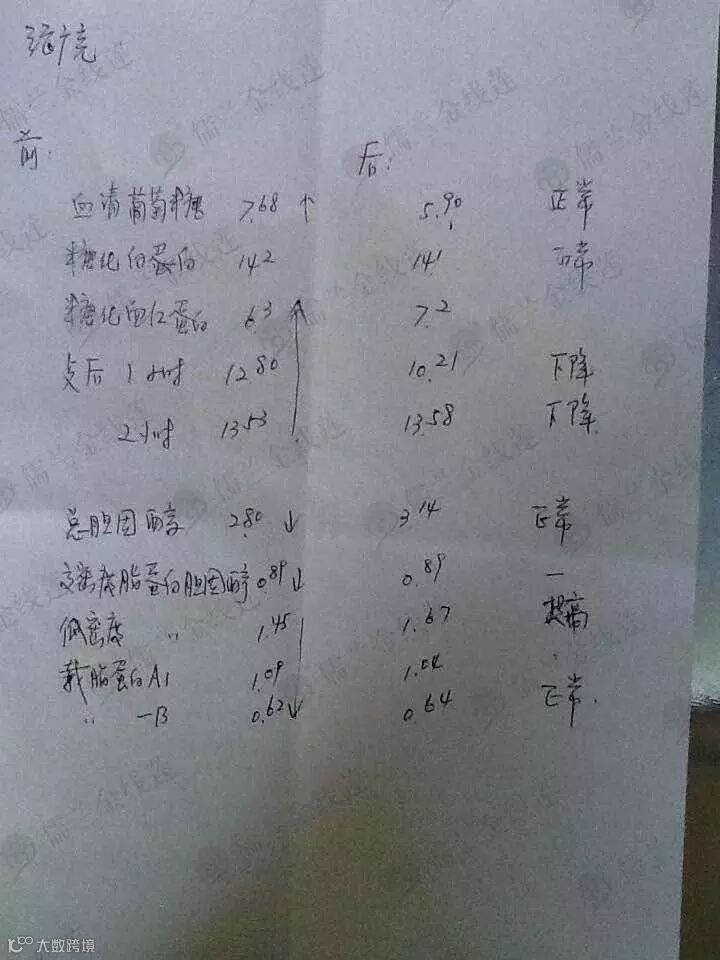 前: 后:
血清葡萄糖 7.68 ↑ 5.90 正常
糖化白蛋白 14.2 14.1 正常
糖化血红蛋白 6.3 7.2
饭后 1小时 12.80 10.21 下降
2小时 13.53 13.58 下降
总胆固醇 2.80 ↓ 3.14 正常
高密度脂蛋白胆固醇 0.89 ↓ 0.89 一
低密度 〃 1.45 1.67 提高
载脂蛋白A1 1.09 1.04
〃 —B 0.62 ↓ 0.64 正常.
儒兰金线莲
大数跨境